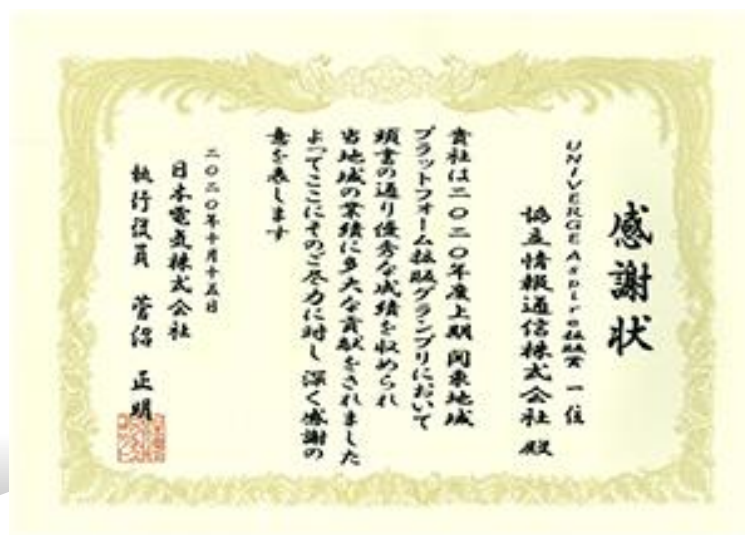 感謝状
UNIVERGE Aspire拡販賞 一位
協立情報通信株式会社 殿
貴社は二〇二〇年度上期 関東地域
プラットフォーム拡販グランプリにおいて
頭書の通り優秀な成績を収められ
当地域の業績に多大な貢献をされました
よってここにそのご尽力に対し 深く感謝の
意を表します
二〇二〇年十月十五日
日本電気株式会社
執行役員 菅沼 正明